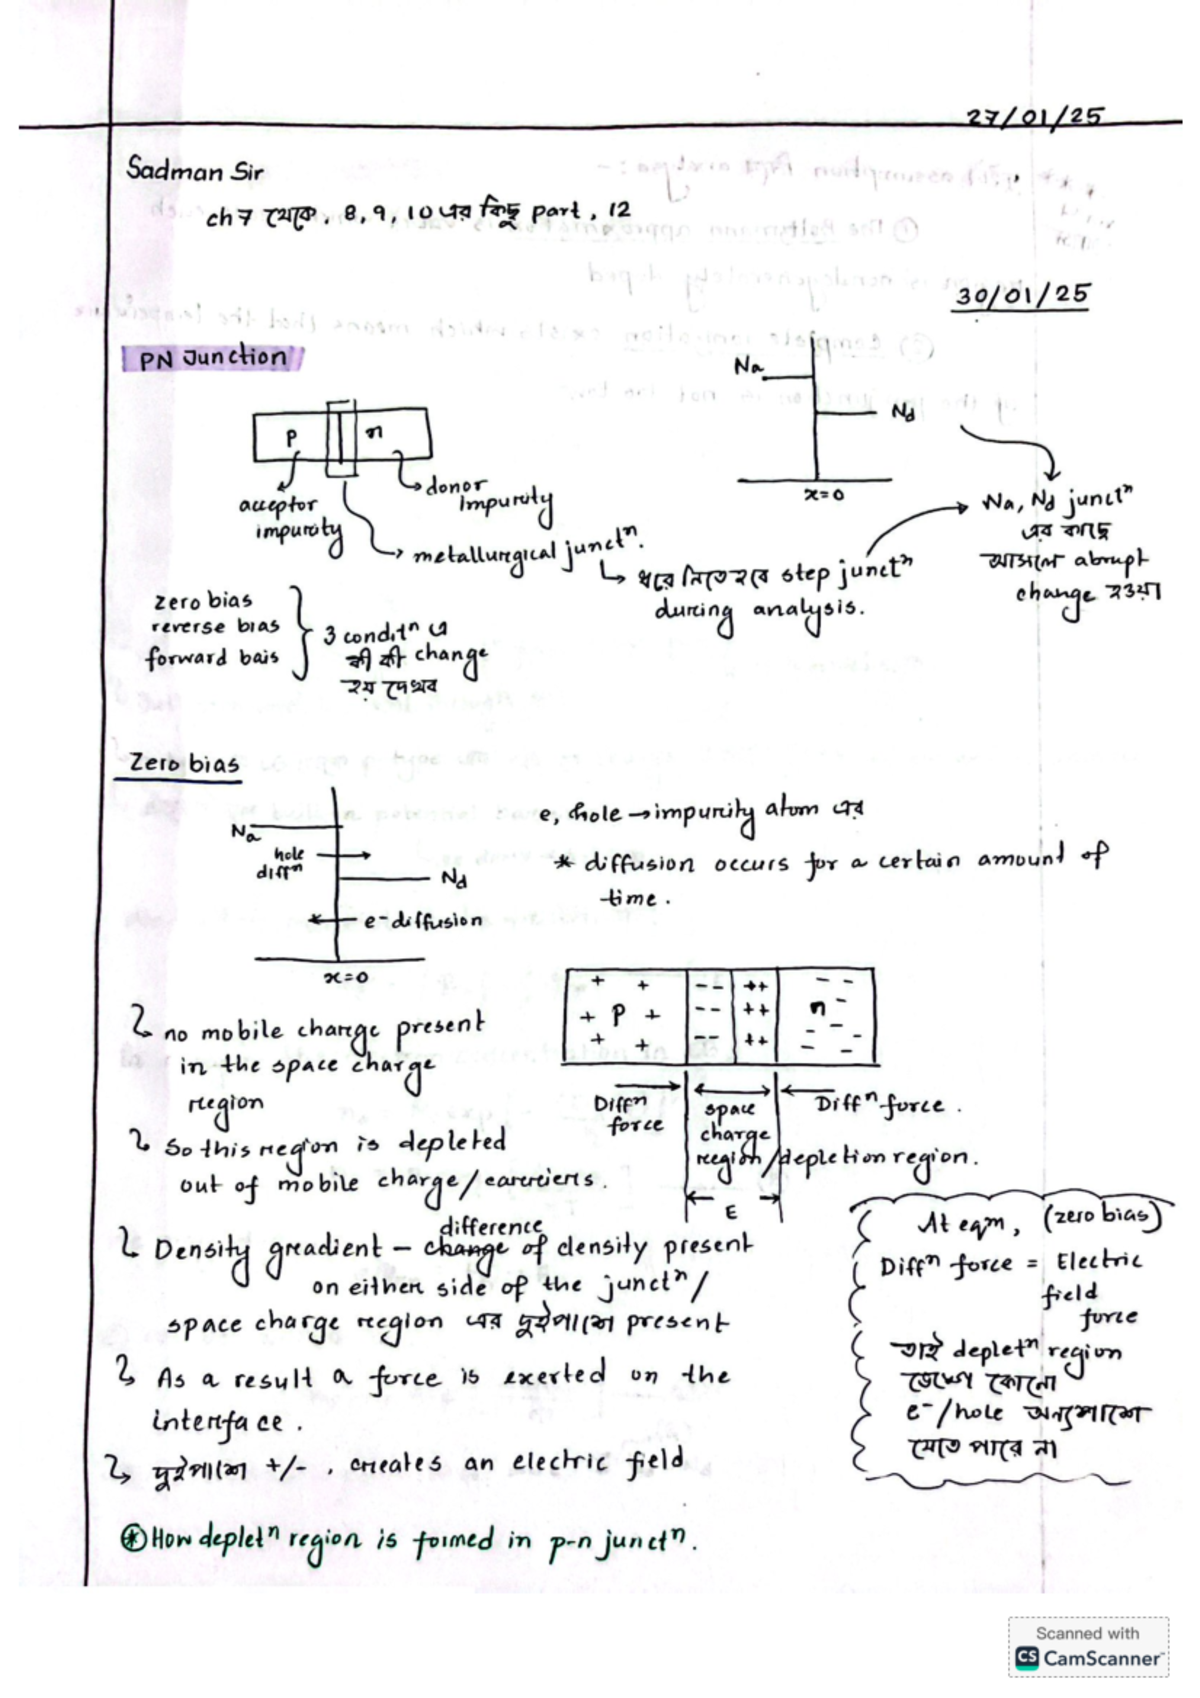 27/01/25
Sadman Sir
ch 7 থেকে, 8, 9, 10 এর কিছু part, 12
30/01/25
PN Junction
Na
Nd
x=0
P
n
acceptor
impurity
donor
impurity
metallurgical junctⁿ.
ধরে নিতে হবে step junctⁿ
during analysis.
Na, Nd junctⁿ
এর কাছে
আসলে abrupt
change হওয়া
zero bias
reverse bias
forward bais
3 conditⁿ এ
কী কী change
হয় দেখব
Zero bias
Na
hole
diffⁿ
Nd
e⁻ diffusion
x=0
e, hole → impurity atom এর
* diffusion occurs for a certain amount of
time.
+ + -- ++ - -
+ P + -- ++ n -
+ + -- ++ - - -
Diffⁿ
force
space
charge
region/depletion region.
Diffⁿ force.
E
no mobile charge present
in the space charge
region
So this region is depleted
out of mobile charge/carriers.
difference
Density gradient – change of density present
on either side of the junctⁿ/
space charge region এর দুইপাশে present
As a result a force is exerted on the
interface.
দুইপাশে +/-, creates an electric field
At eqm, (zero bias)
Diffⁿ force = Electric
field
force
তাই depletⁿ region
ভেঙ্গে কোনো
e⁻/hole অন্যপাশে
যেতে পারে না
* How depletⁿ region is formed in p-n junctⁿ.
Scanned with
CS CamScanner